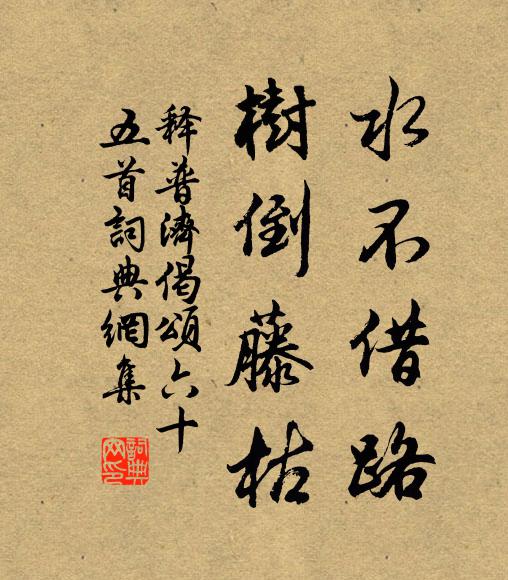 水不借路
樹倒藤枯
释普濟偈頌六十
五首詞典網集
詞典網印